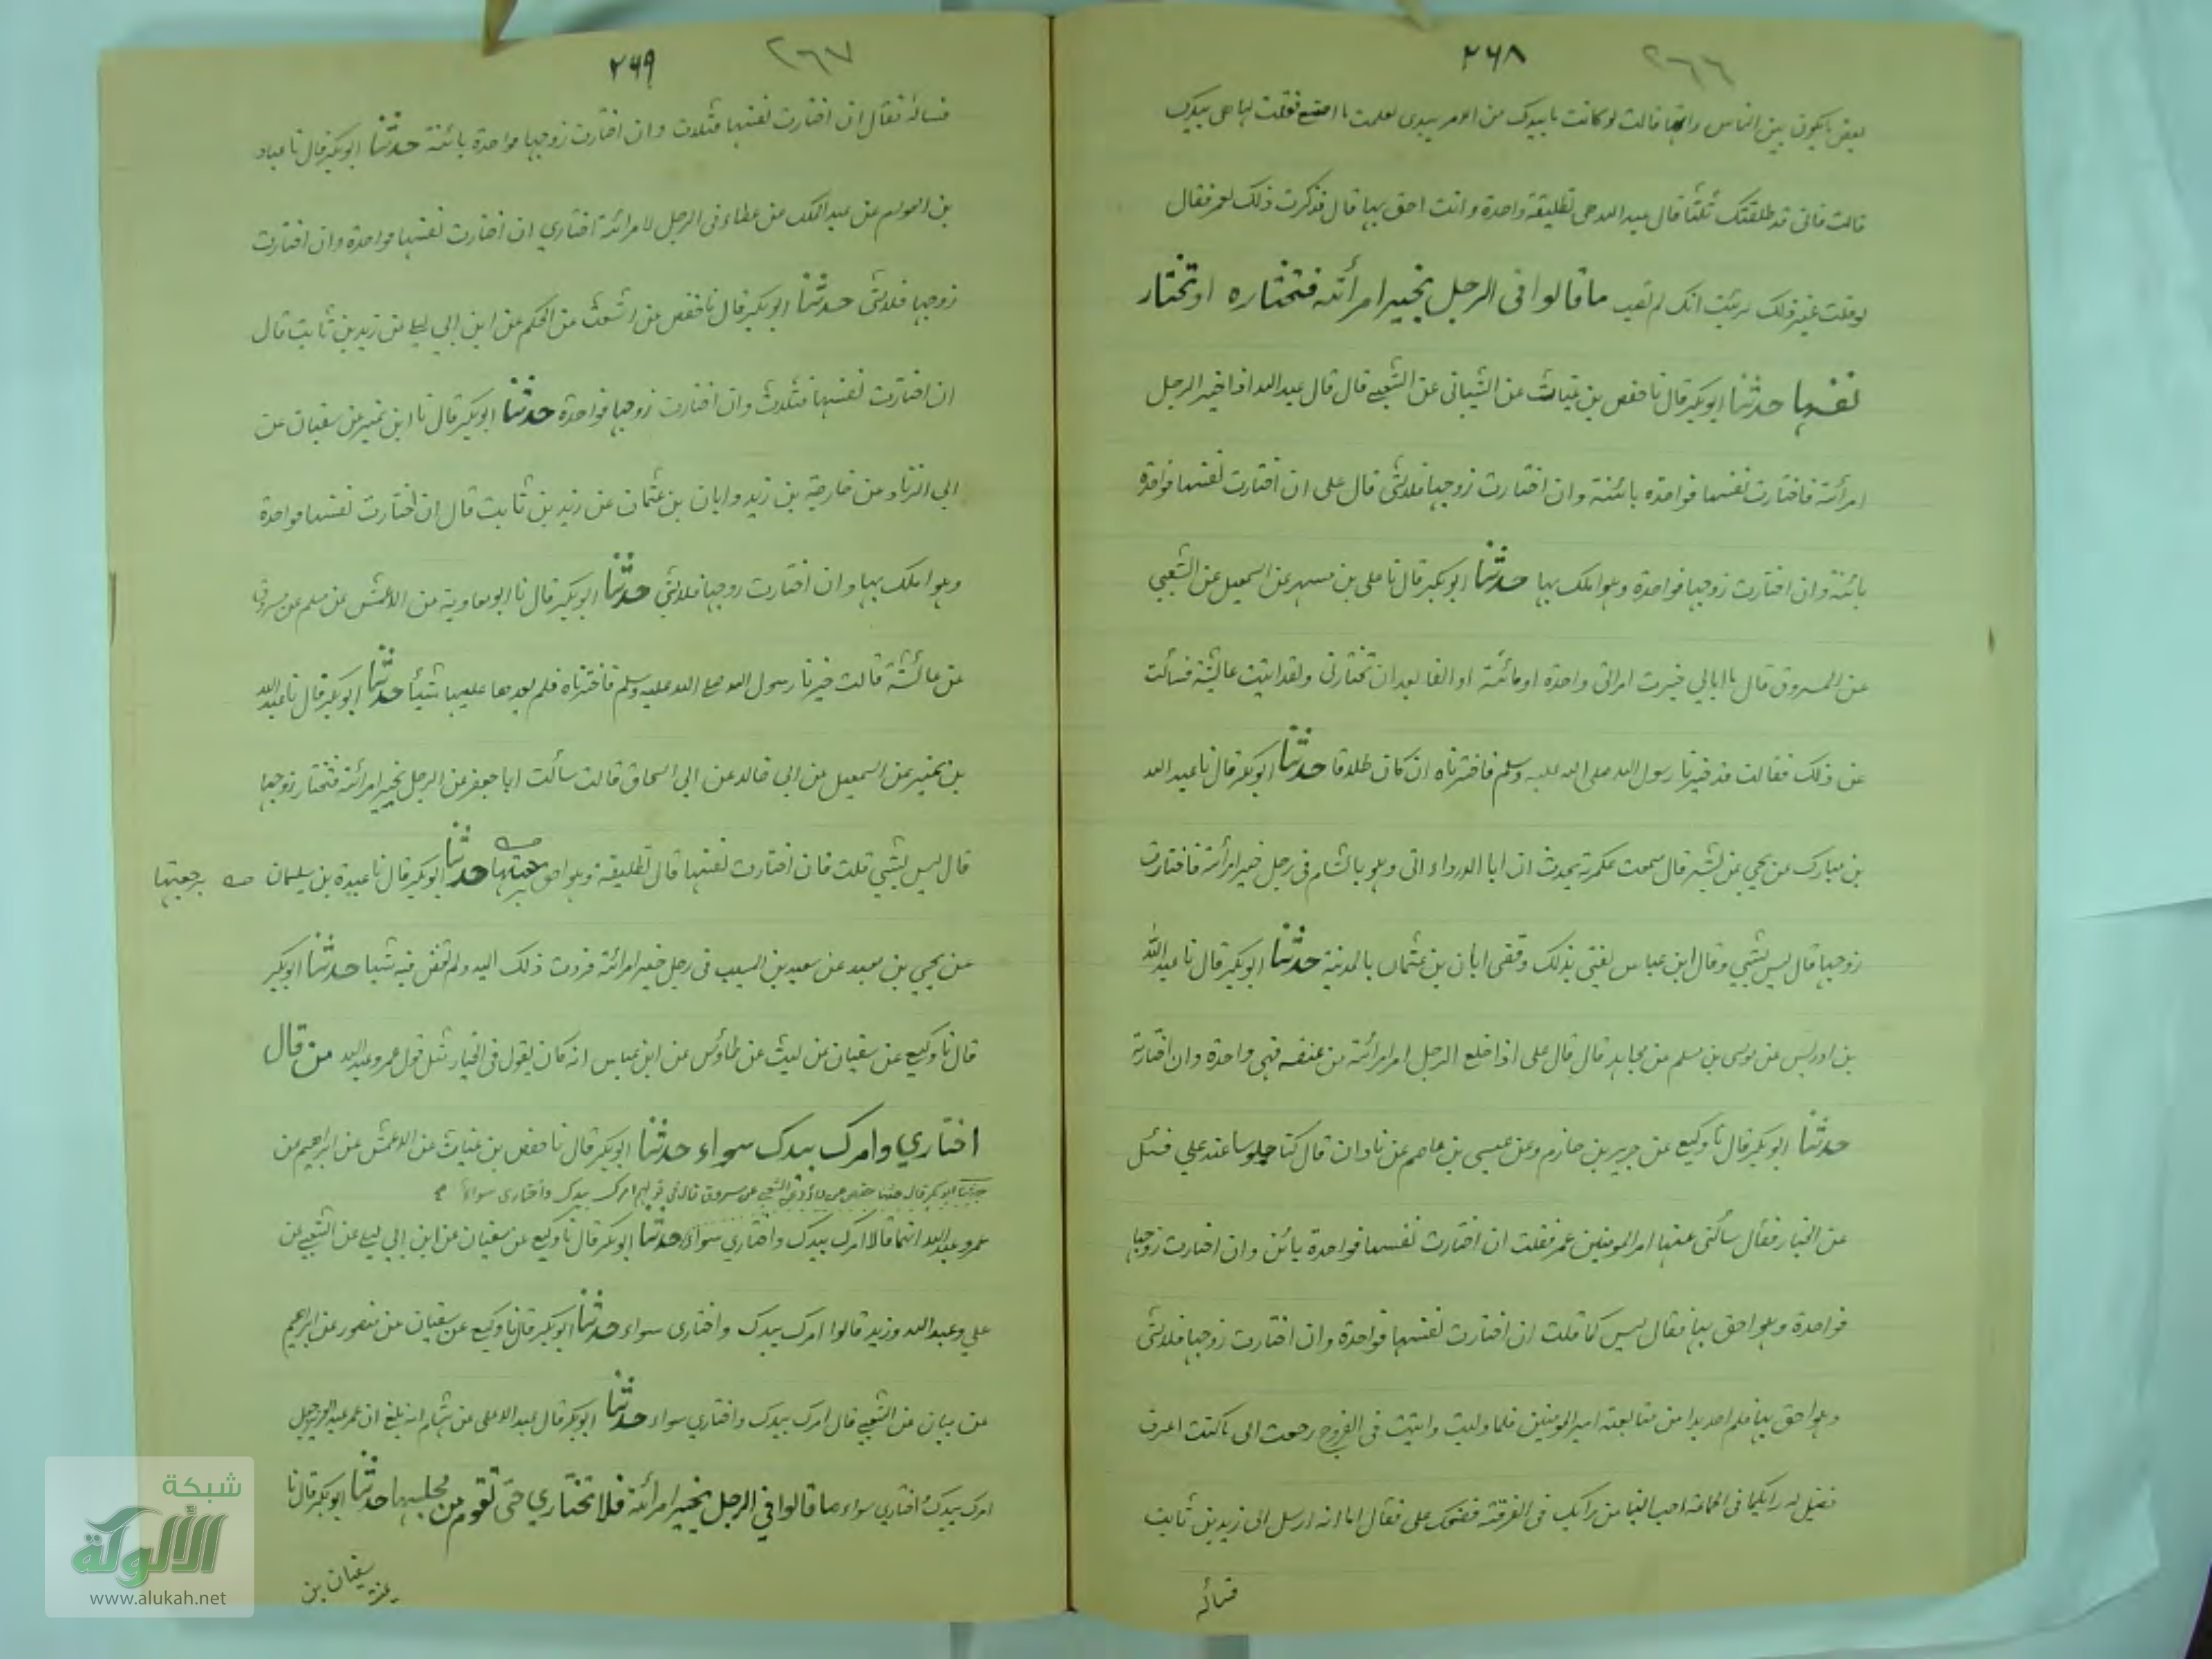 ٢٦٦
٢٦٨
بعض ما يكون بين الناس وانها قالت لو كانت ما بيدك من الامر بيدى لعلمت ما اصنع فقلت لها هى بيدك
قالت فانى قد طلقتك ثلثا قال عبد الله هى تطليقة واحدة وانت احق بها قال فذكرت ذلك لعمر فقال
لو قلت غير ذلك لرئيت انك لم تصب ما قالوا فى الرجل يخير امرأته فتختاره او تختار
نفسها حدثنا ابوبكر قال نا حفص بن غياث عن الشيبانى عن الشعبى قال قال عبد الله اذا خير الرجل
امرأته فاختارت نفسها فواحدة بائنة وان اختارت زوجها فلا شئ قال على ان اختارت نفسها فواحدة
بائنة وان اختارت زوجها فواحدة وهو املك بها حدثنا ابوبكر قال نا على بن مسهر عن اسمعيل عن الشعبي
عن المسروق قال ما ابالي خيرت امراتى واحدة او مائة او الفا بعد ان تختارنى ولقد اتيت عائشة فسألت
عن ذلك فقالت قد خيرنا رسول الله صلى الله عليه وسلم فاخترناه ان كان طلاقا حدثنا ابوبكر قال نا عبد الله
بن مبارك عن يحيى بن بشر قال سمعت عكرمة يحدث ان ابا الدرداء اتى وهو بالشام فى رجل خير امرأته فاختارت
زوجها قال ليس بشئ وقال ابن عباس يفتى بذلك وقضى ابان بن عثمان بالمدينة حدثنا ابوبكر قال نا عبد الله
بن ادريس عن موسى بن مسلم عن مجاهد قال قال على اذا خلع الرجل امر امرأته من عنقه فهى واحدة وان اختارته
حدثنا ابوبكر قال نا وكيع عن جرير بن حازم وعن عيسى بن عاصم عن زاذان قال كنا جلوسا عند علي فسئل
عن الخيار فقال سألنى عنها امير المومنين عمر فقلت ان اختارت نفسها فواحدة بائن وان اختارت زوجها
فواحدة وهو احق بها فقال ليس كما قلت ان اختارت نفسها فواحدة وان اختارت زوجها فلا شئ
وهو احق بها فلم اجد بدا من متابعة امير المومنين فلما وليت واتيت فى الفروج رجعت الى ما كنت اعرف
فقيل له رايكما فى الجماعة احب الينا من رايك فى الفرقة فضحك على فقال اما انه ارسل الى زيد بن ثابت
فسأله
٢٦٧
٢٦٩
فسأله فقال ان اختارت نفسها فثلاث وان اختارت زوجها فواحدة بائنة حدثنا ابوبكر قال نا عباد
بن العوام عن عبد الملك عن عطاء فى الرجل لامرأته اختاري ان اختارت نفسها فواحدة وان اختارت
زوجها فلا شئ حدثنا ابوبكر قال نا حفص عن اشعث عن الحكم عن ابن ابي ليلى عن زيد بن ثابت قال
ان اختارت نفسها فثلاث وان اختارت زوجها فواحدة حدثنا ابوبكر قال نا ابن نمير عن سفيان عن
ابي الزناد عن خارجة بن زيد وابان بن عثمان عن زيد بن ثابت قال ان اختارت نفسها فواحدة
وهو املك بها وان اختارت زوجها فلا شئ حدثنا ابوبكر قال نا ابو معاوية عن الاعمش عن مسلم عن مسروق
عن عائشة قالت خيرنا رسول الله صلى الله عليه وسلم فاخترناه فلم يعدها علينا شيئا حدثنا ابوبكر قال نا عبد الله
بن نمير عن اسمعيل بن ابي خالد عن ابي اسحاق قالت سألت ابا جعفر عن الرجل يخير امرأته فتختار زوجها
قال ليس بشئ قلت فان اختارت نفسها قال تطليقة وهو احق حدثنا ابوبكر قال نا عبدة بن سليمان
برجعتها
عن يحيى بن سعيد عن سعيد بن المسيب فى رجل خير امرأته فردت ذلك اليه ولم تقض فيه شيئا حدثنا ابوبكر
قال نا وكيع عن سفيان عن ليث عن طاؤس عن ابن عباس انه كان يقول فى الخيار مثل قول عمر وعبد الله من قال
اختاري وامرك بيدك سواء حدثنا ابوبكر قال نا حفص بن غياث عن الاعمش عن ابراهيم عن
حدثنا ابوبكر قال حدثنا حفص عن داؤد عن الشعبى عن مسروق قال فى قولهم امرك بيدك واختارى سواء
عمر وعبد الله انهما قالا امرك بيدك واختاري سواء حدثنا ابوبكر قال نا وكيع عن سفيان عن ابن ابي ليلى عن الشعبى عن
علي وعبد الله وزيد قالوا امرك بيدك واختارى سواء حدثنا ابوبكر قال نا وكيع عن سفيان عن منصور عن ابراهيم
عن بيان عن الشعبى قال امرك بيدك واختاري سواء حدثنا ابوبكر قال عبد الاعلى عن هشام انه بلغ ان عمر عبد العزيز جعل
امرك بيدك اختاري سواء ما قالوا في الرجل يخير امرأته فلا تختاري حتى تقوم من مجلسها حدثنا ابوبكر قال نا
سفيان بن
شبكة
الألوكة
www.alukah.net